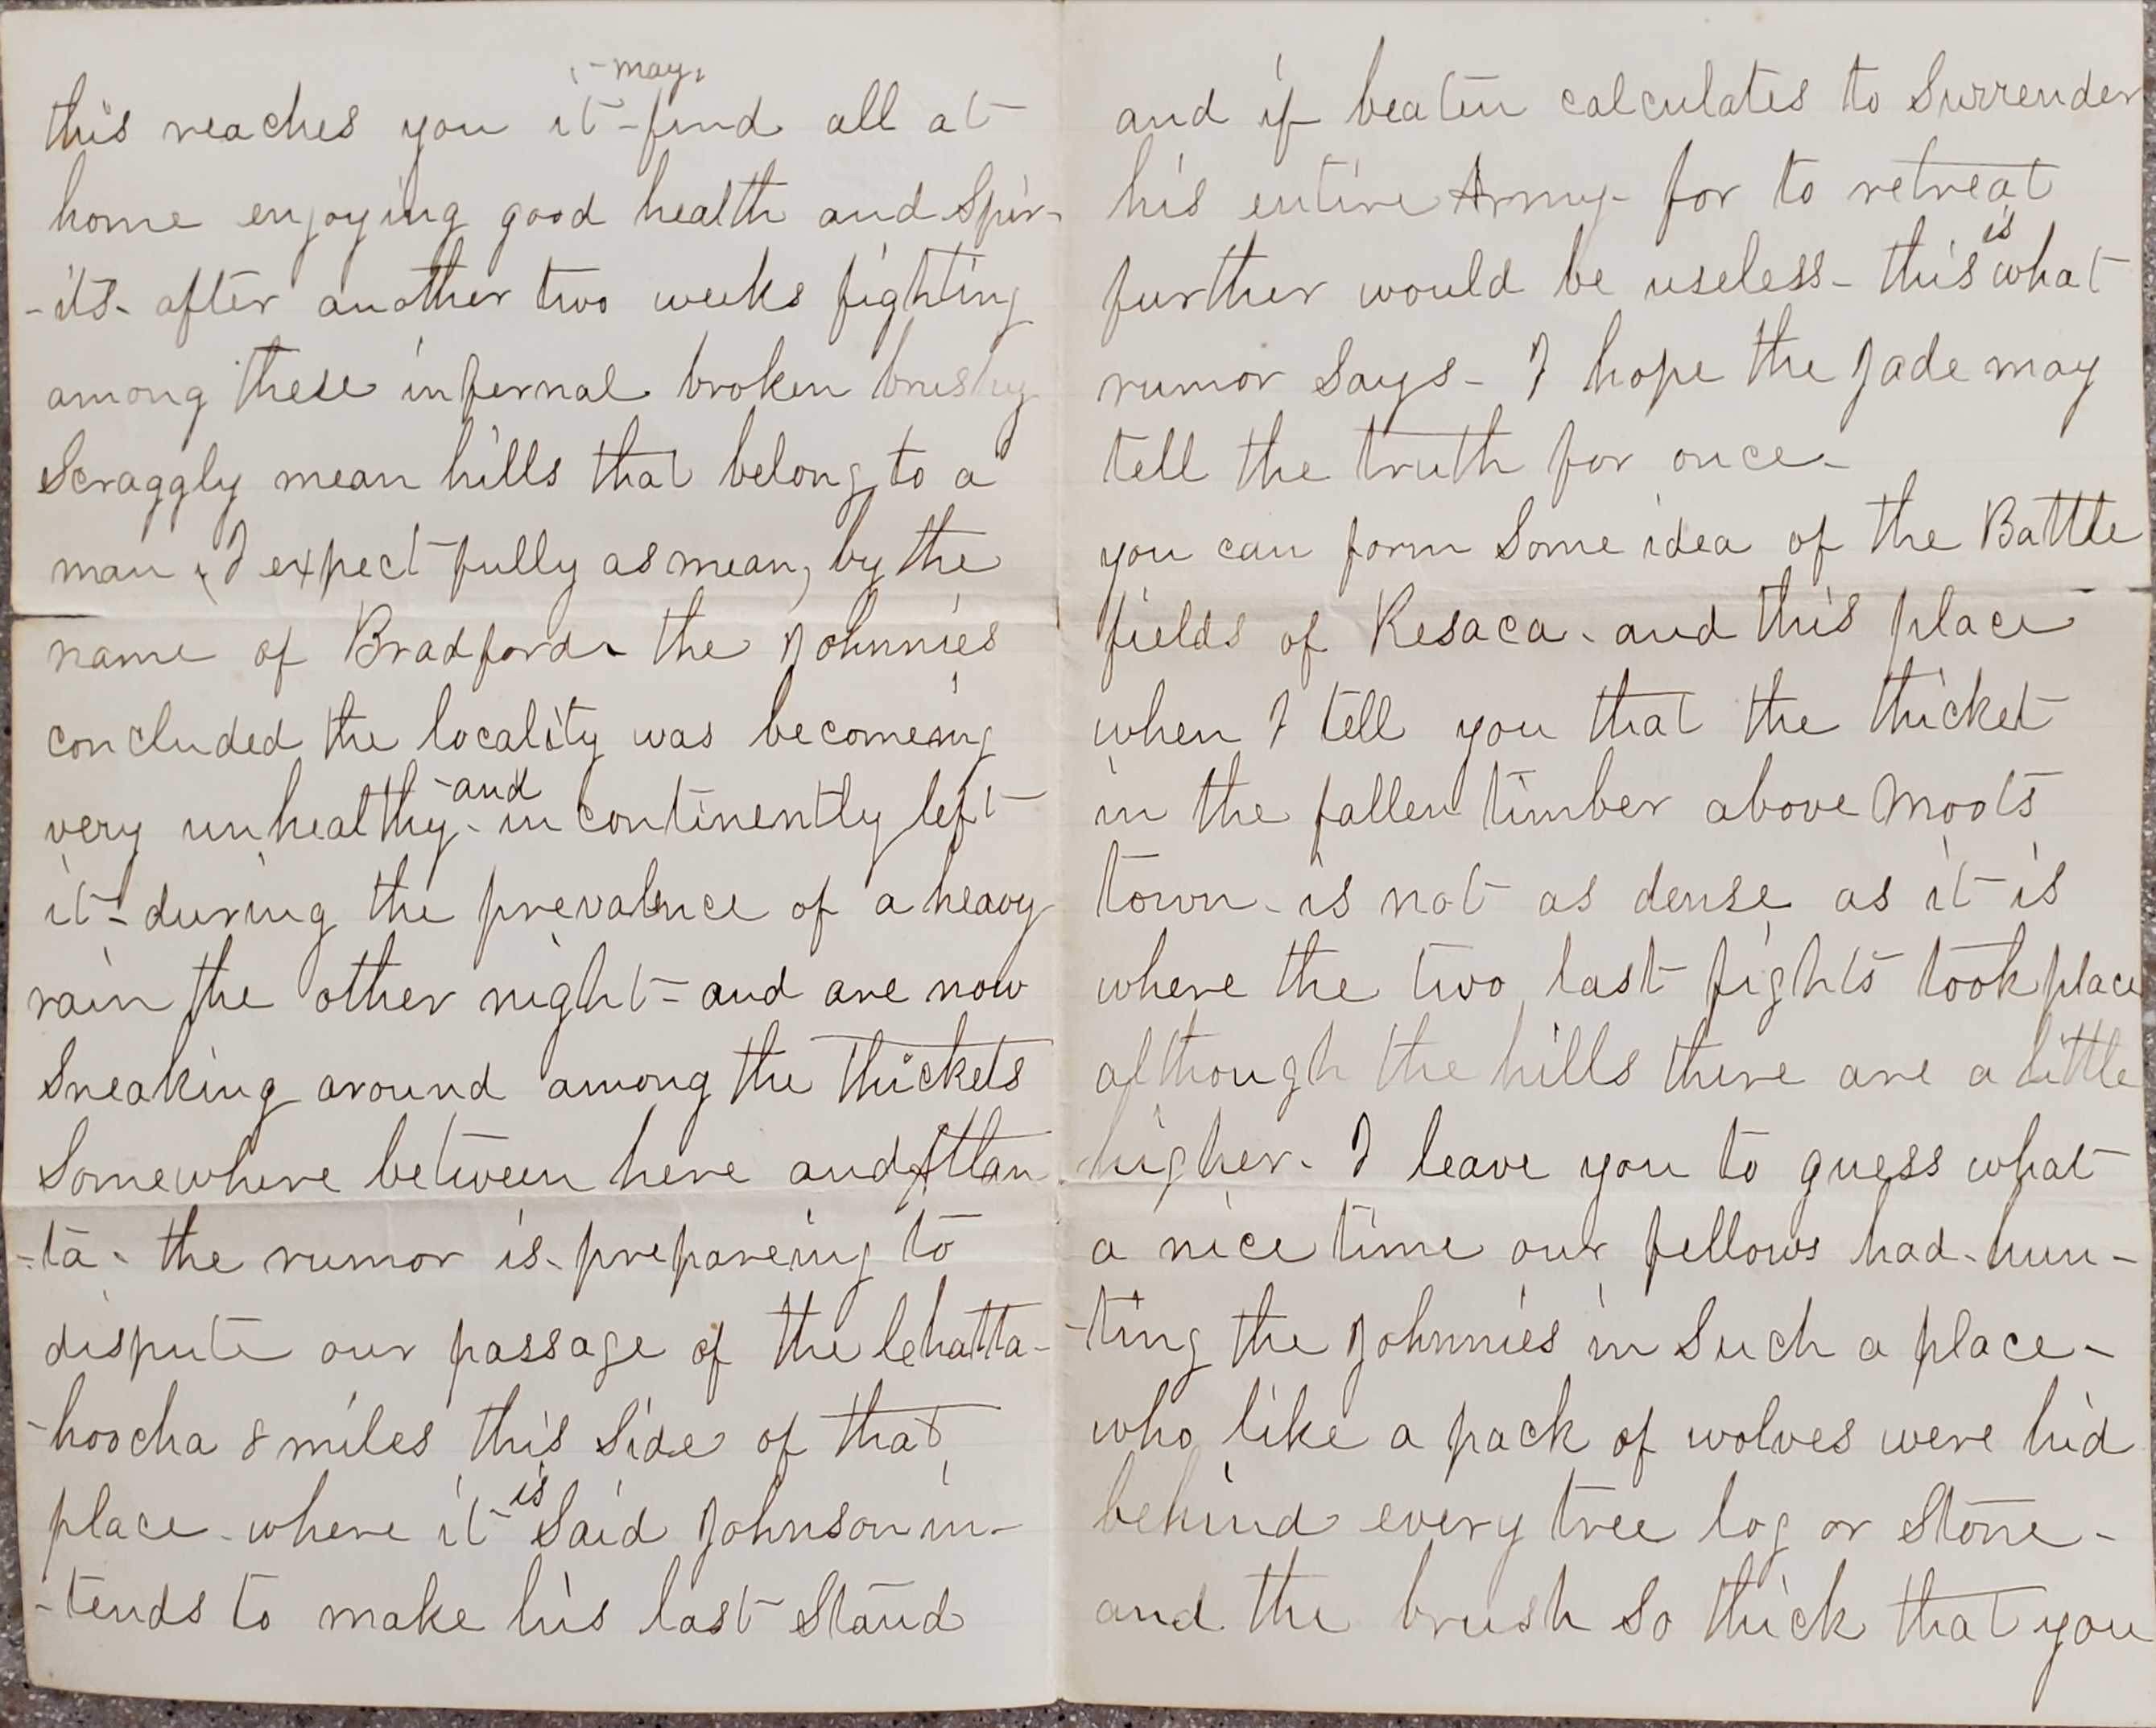 -may,
this reaches you it-find all at
home enjoying good health and Spir-
-its- after another two weeks fighting
among these infernal broken brushy
Scraggly mean hills that belong to a
man (I expect fully as mean) by the
name of Bradford- the Johnnies
concluded the locality was becomeing
-and
very unhealthy- incontinently left
it- during the prevalence of a heavy
rain the other night- and are now
Sneaking around among the thickets
Somewhere between here and Atlan
-ta- the rumor is- prepareing to
dispute our passage of the Chatta-
-hoocha 8 miles this Side of that
is
place- where it Said Johnson in-
-tends to make his last Stand
and if beaten calculates to Surrender
his entire Army- for to retreat
is
further would be useless- this what
rumor Says- I hope the Jade may
tell the truth for once-
you can form Some idea of the Battle
fields of Resaca- and this place
when I tell you that the thicket
in the fallen timber above Moots
town- is not as dense as it is
where the two last fights took place
although the hills there are a little
higher- I leave you to guess what
a nice time our fellows had- hun-
-ting the Johnnies in Such a place-
who like a pack of wolves were hid
behind every tree log or Stone-
and the brush So thick that you